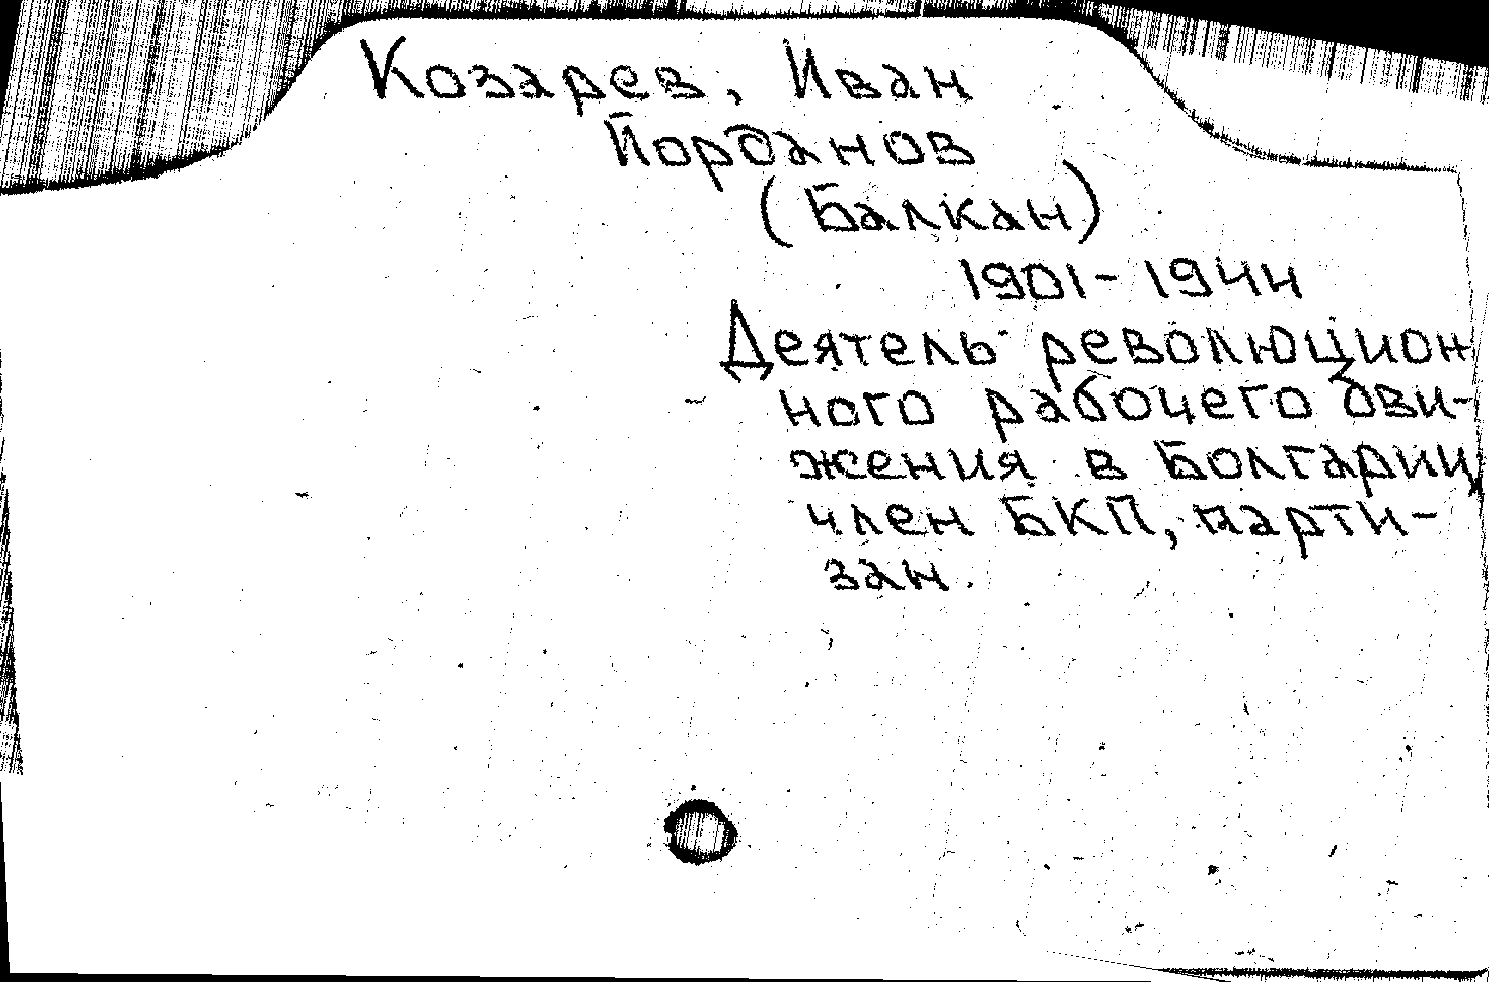 Козарев, Иван
Йорданов
(Балкан)
1901-1944
Деятель революцион
ного рабочего дви-
жения в Болгарии,
член БКП, парти-
зан.